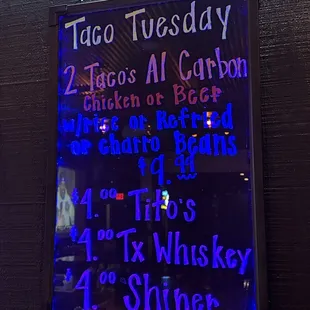 Taco Tuesday
2 Taco's Al Carbon
Chicken or Beef
w/rice or Refried
or charro Beans
$9.99
$4.00 Tito's
$4.00 Tx Whiskey
$4.00 Shiner